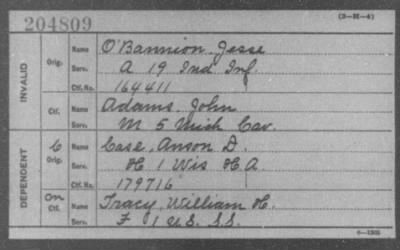 204809
(3—M—4)
INVALID
Orig. Name O'Bannion, Jesse
Serv. A 19 Ind Inf.
Ctf. No. 164411
Ctf. Name Adams, John
Serv. M 5 Mich Cav.
DEPENDENT
C Orig. Name Case, Anson D.
Serv. H 1 Wis H A
Ctf. No. 179716
On Ctf. Name Tracy, William H.
Serv. F 1 U.S. S.S.